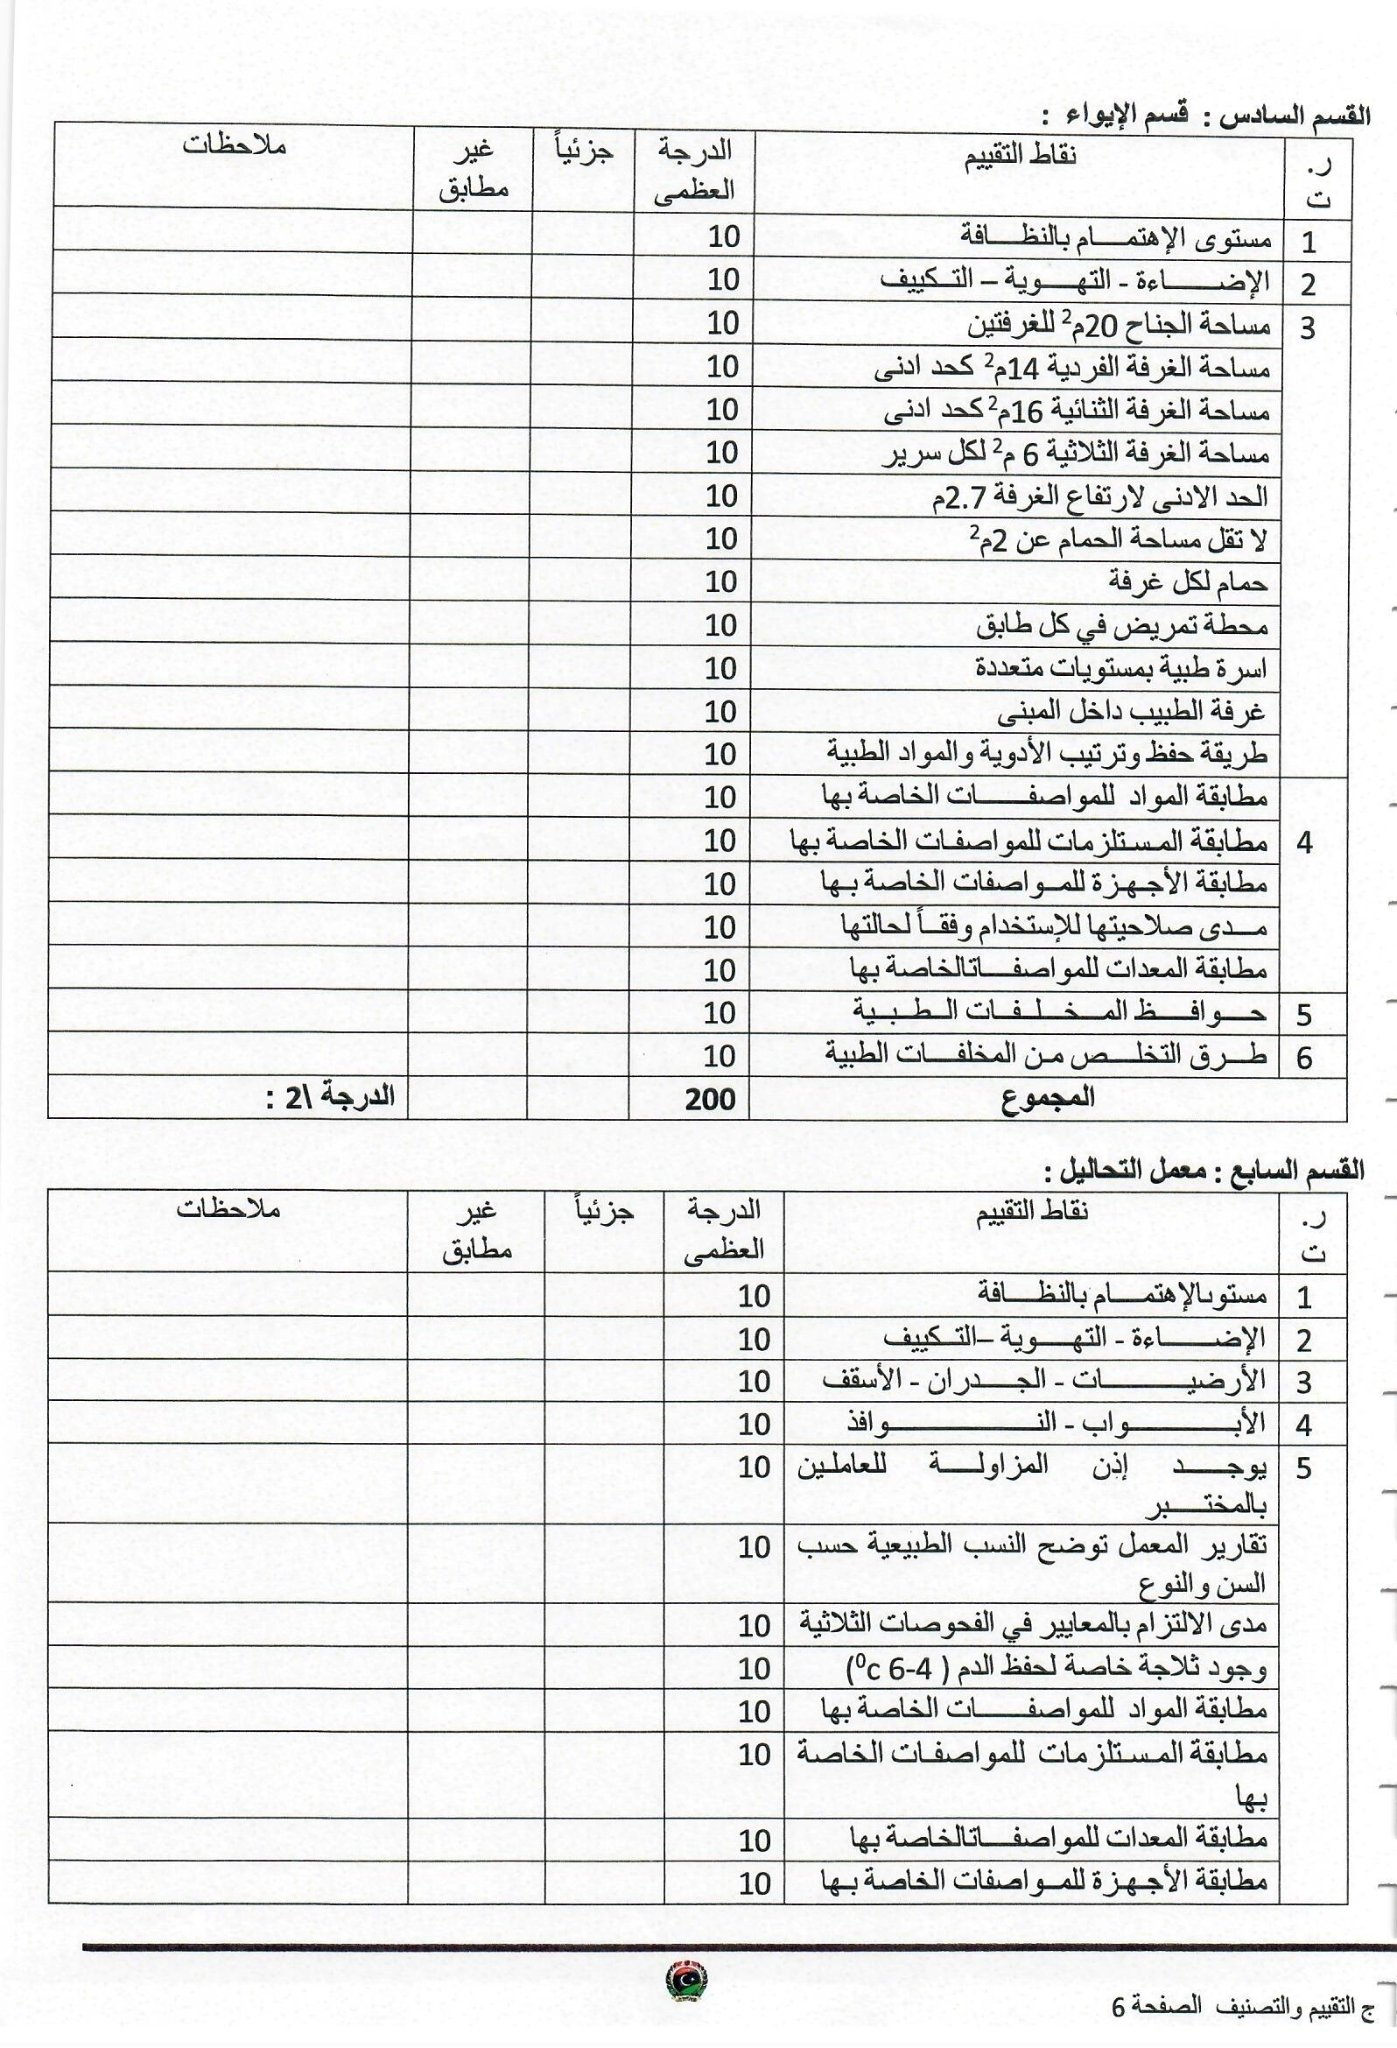 القسم السادس : قسم الإيواء :
ر.ت نقاط التقييم الدرجة العظمى جزئياً غير مطابق ملاحظات
1 مستوى الإهتمـــام بالنظـــافة 10
2 الإضــــاءة - التهــــوية – التــكييف 10
3 مساحة الجناح 20م² للغرفتين 10
مساحة الغرفة الفردية 14م² كحد ادنى 10
مساحة الغرفة الثنائية 16م² كحد ادنى 10
مساحة الغرفة الثلاثية 6 م² لكل سرير 10
الحد الادنى لارتفاع الغرفة 2.7م 10
لا تقل مساحة الحمام عن 2م² 10
حمام لكل غرفة 10
محطة تمريض في كل طابق 10
اسرة طبية بمستويات متعددة 10
غرفة الطبيب داخل المبنى 10
طريقة حفظ وترتيب الأدوية والمواد الطبية 10
مطابقة المواد للمواصفــــات الخاصة بها 10
4 مطابقة المستلزمات للمواصفات الخاصة بها 10
مطابقة الأجهزة للمواصفات الخاصة بها 10
مــدى صلاحيتها للإستخدام وفقــاً لحالتها 10
مطابقة المعدات للمواصفـــاتالخاصة بها 10
5 حــوافــظ المــخــلــفــات الــطــبــية 10
6 طــرق التخلــص مـن المخلفــات الطبية 10
المجموع 200 الدرجة \2 :
القسم السابع : معمل التحاليل :
ر.ت نقاط التقييم الدرجة العظمى جزئياً غير مطابق ملاحظات
1 مستوىالإهتمـــام بالنظـــافة 10
2 الإضــــاءة - التهــــوية –التــكييف 10
3 الأرضيــــــات - الجــــدران - الأسقف 10
4 الأبـــــــواب - النـــــــوافذ 10
5 يوجــــد إذن المزاولــــة للعاملـين 10
بالمختـــبر
تقارير المعمل توضح النسب الطبيعية حسب 10
السن والنوع
مدى الالتزام بالمعايير في الفحوصات الثلاثية 10
وجود ثلاجة خاصة لحفظ الدم ( 4-6 c⁰) 10
مطابقة المواد للمواصفــــات الخاصة بها 10
مطابقة المستلزمات للمواصفات الخاصة 10
بها
مطابقة المعدات للمواصفـــاتالخاصة بها 10
مطابقة الأجهزة للمواصفات الخاصة بها 10
ج التقييم والتصنيف الصفحة 6